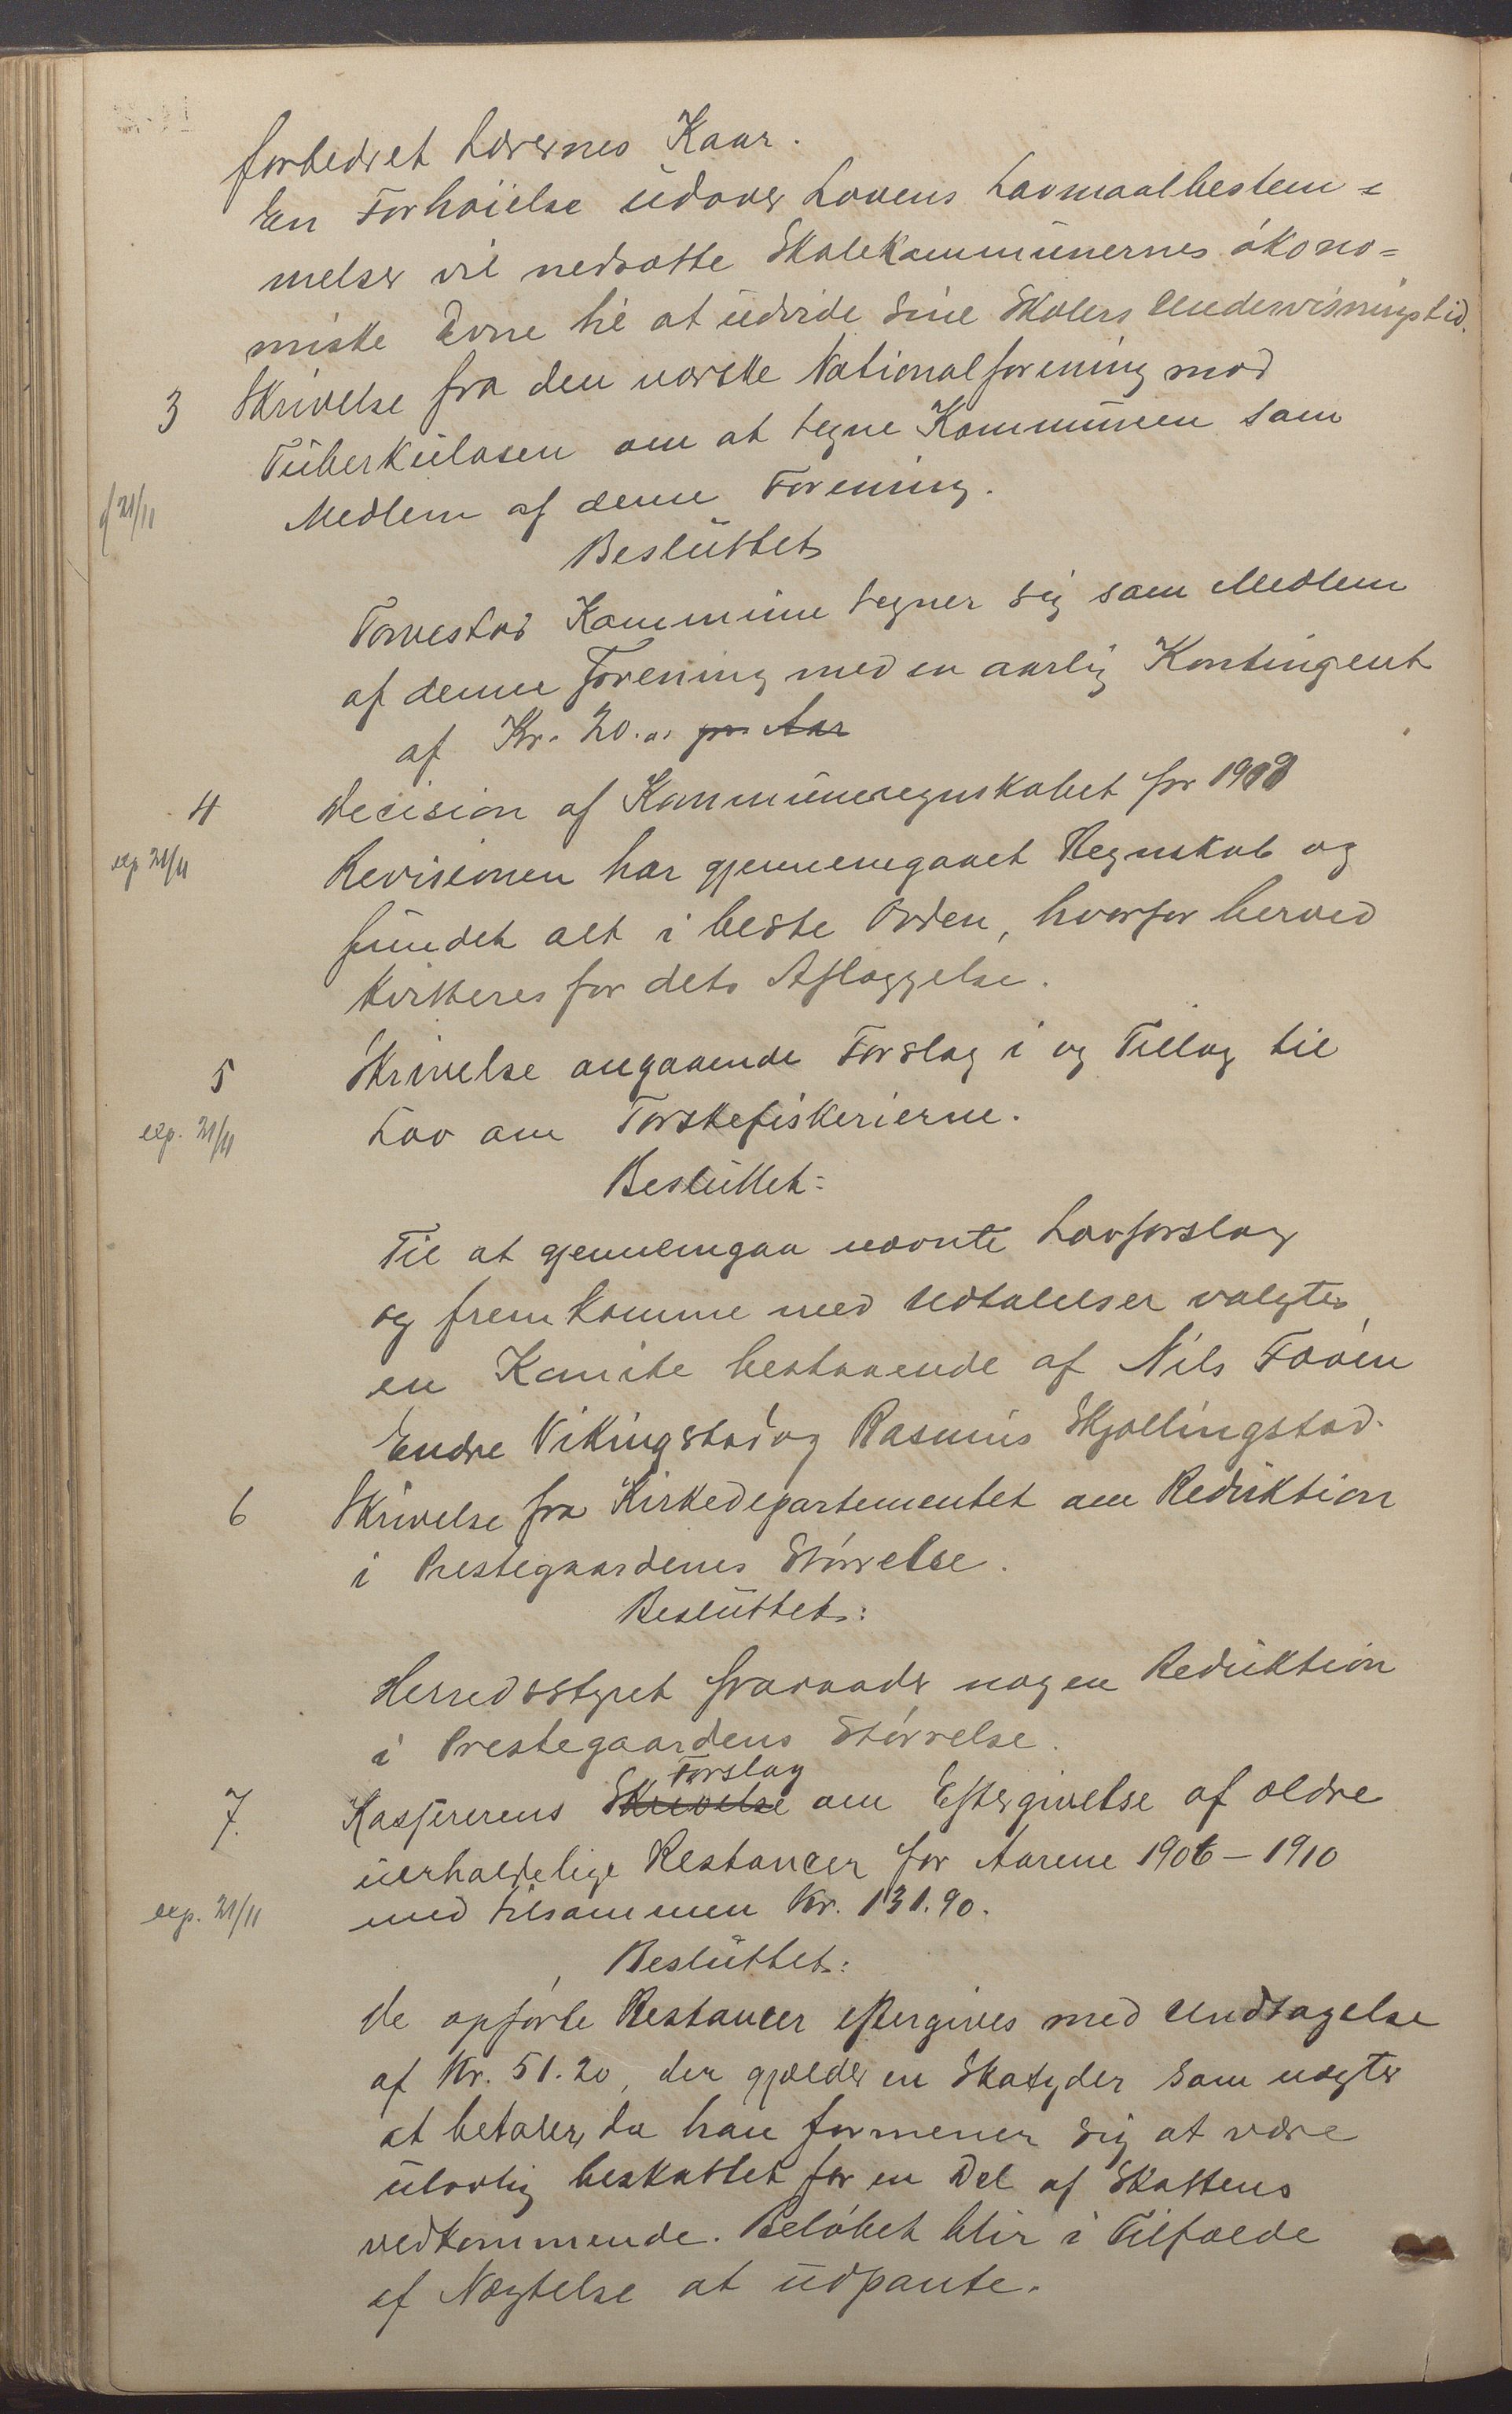 forbedret Lærernes Kaar.
En Forhøielse udover Lovens Lavmaalbestem=
melser vil nedsætte Skolekommunernes økono=
miske Evne til at udvide sine Skolers Undervisningstid.
3 Skrivelse fra den norske Nationalforening mod
Tuberkulosen om at tegne Kommunen som
21/11 Medlem af denne Forening.
Besluttet
Torvestad Kommune tegner sig som Medlem
af denne Forening med en aarlig Kontingent
af Kr. 20.00 pr. Aar
4 Decision af Kommuneregnskabet for 1908
exp 21/11 Revisionen har gjennemgaaet Regnskab og
fundet alt i beste Orden, hvorfor herved
kvitteres for dets Aflæggelse.
5 Skrivelse angaaende Forslag i og Tillæg til
exp. 21/11 Lov om Torskefiskerierne.
Besluttet:
Til at gjennemgaa nævnte Lovforslag
og fremkomme med Udtalelser valgtes
en Komite bestaaende af Nils Føøen
Endre Vikingstad og Rasmus Skjøllingstad.
6 Skrivelse fra Kirkedepartementet om Reduktion
i Prestegaardenes Størrelse.
Besluttet:
Herredsstyret fraraader nogen Reduktion
i Prestegaardens Størrelse.
Forslag
7. Kasserens Skrivelse om Eftergivelse af ældre
uerholdelige Restancer for Aarene 1906–1910
exp. 21/11 med tilsammen Kr. 131.90.
Besluttet:
De opførte Restancer eftergives med Undtagelse
af Kr. 51.20, der gjælder en Skatyder som nægter
at betaler, da han formener sig at være
ulovlig beskattet for en Del af Skattens
vedkommende. Beløbet blir i Tilfælde
af Nægtelse at udpante.